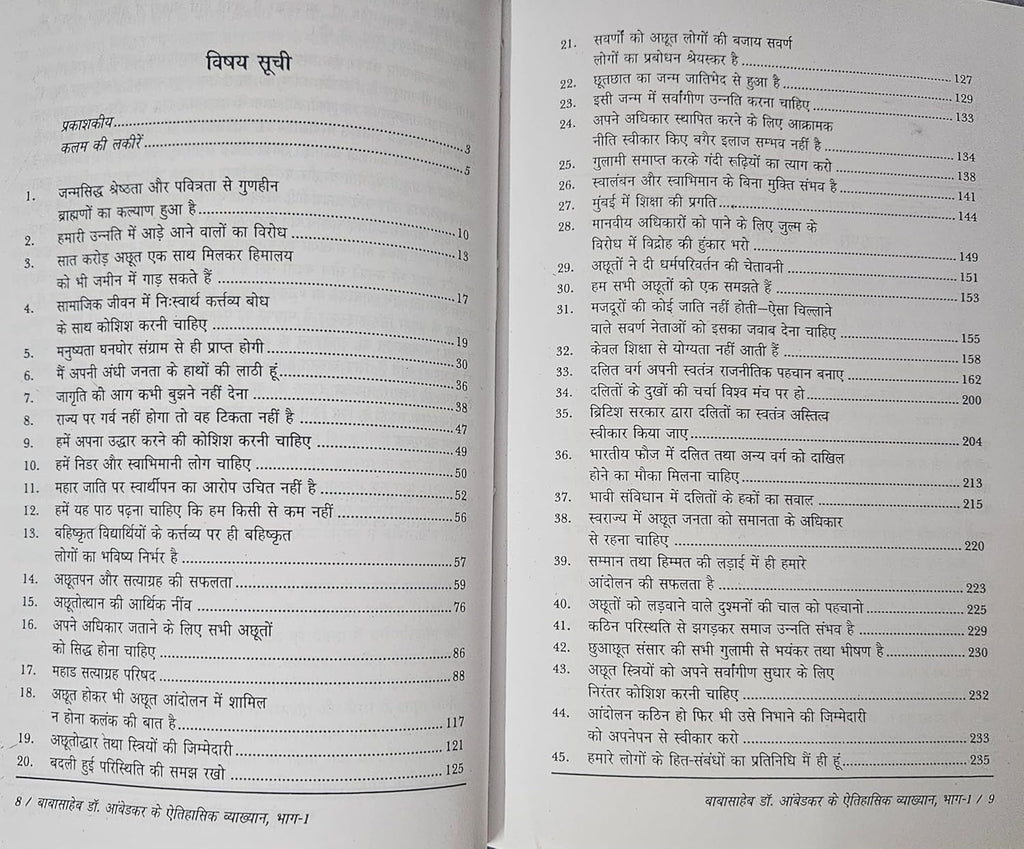 विषय सूची
प्रकाशकीय........................................................3
कलम की लकीरें........................................................5
1. जन्मसिद्ध श्रेष्ठता और पवित्रता से गुणहीन
ब्राह्मणों का कल्याण हुआ है........................................................10
2. हमारी उन्नति में आड़े आने वालों का विरोध........................................................13
3. सात करोड़ अछूत एक साथ मिलकर हिमालय
को भी जमीन में गाड़ सकते हैं........................................................17
4. सामाजिक जीवन में निःस्वार्थ कर्त्तव्य बोध
के साथ कोशिश करनी चाहिए........................................................19
5. मनुष्यता घनघोर संग्राम से ही प्राप्त होगी........................................................30
6. मैं अपनी अंधी जनता के हाथों की लाठी हूं........................................................36
7. जागृति की आग कभी बुझने नहीं देना........................................................38
8. राज्य पर गर्व नहीं होगा तो वह टिकता नहीं है........................................................47
9. हमें अपना उद्धार करने की कोशिश करनी चाहिए........................................................49
10. हमें निडर और स्वाभिमानी लोग चाहिए........................................................50
11. महार जाति पर स्वार्थीपन का आरोप उचित नहीं है........................................................52
12. हमें यह पाठ पढ़ना चाहिए कि हम किसी से कम नहीं........................................................56
13. बहिष्कृत विद्यार्थियों के कर्त्तव्य पर ही बहिष्कृत
लोगों का भविष्य निर्भर है........................................................57
14. अछूतपन और सत्याग्रह की सफलता........................................................59
15. अछूतोत्थान की आर्थिक नींव........................................................76
16. अपने अधिकार जताने के लिए सभी अछूतों
को सिद्ध होना चाहिए........................................................86
17. महाड सत्याग्रह परिषद........................................................88
18. अछूत होकर भी अछूत आंदोलन में शामिल
न होना कलंक की बात है........................................................117
19. अछूतोद्धार तथा स्त्रियों की जिम्मेदारी........................................................121
20. बदली हुई परिस्थिति की समझ रखो........................................................125
8 / बाबासाहेब डॉ. आंबेडकर के ऐतिहासिक व्याख्यान, भाग-1
21. सवर्णों को अछूत लोगों की बजाय सवर्ण
लोगों का प्रबोधन श्रेयस्कर है........................................................127
22. छूतछात का जन्म जातिभेद से हुआ है........................................................129
23. इसी जन्म में सर्वांगीण उन्नति करना चाहिए........................................................133
24. अपने अधिकार स्थापित करने के लिए आक्रामक
नीति स्वीकार किए बगैर इलाज सम्भव नहीं है........................................................134
25. गुलामी समाप्त करके गंदी रूढ़ियों का त्याग करो........................................................138
26. स्वालंबन और स्वाभिमान के बिना मुक्ति संभव है........................................................141
27. मुंबई में शिक्षा की प्रगति........................................................144
28. मानवीय अधिकारों को पाने के लिए जुल्म के
विरोध में विद्रोह की हुंकार भरो........................................................149
29. अछूतों ने दी धर्मपरिवर्तन की चेतावनी........................................................151
30. हम सभी अछूतों को एक समझते हैं........................................................153
31. मजदूरों की कोई जाति नहीं होती—ऐसा चिल्लाने
वाले सवर्ण नेताओं को इसका जवाब देना चाहिए........................................................155
32. केवल शिक्षा से योग्यता नहीं आती हैं........................................................158
33. दलित वर्ग अपनी स्वतंत्र राजनीतिक पहचान बनाए........................................................162
34. दलितों के दुखों की चर्चा विश्व मंच पर हो........................................................200
35. ब्रिटिश सरकार द्वारा दलितों का स्वतंत्र अस्तित्व
स्वीकार किया जाए........................................................204
36. भारतीय फौज में दलित तथा अन्य वर्ग को दाखिल
होने का मौका मिलना चाहिए........................................................213
37. भावी संविधान में दलितों के हकों का सवाल........................................................215
38. स्वराज्य में अछूत जनता को समानता के अधिकार
से रहना चाहिए........................................................220
39. सम्मान तथा हिम्मत की लड़ाई में ही हमारे
आंदोलन की सफलता है........................................................223
40. अछूतों को लड़वाने वाले दुश्मनों की चाल को पहचानो........................................................225
41. कठिन परिस्थति से झगड़कर समाज उन्नति संभव है........................................................229
42. छुआछूत संसार की सभी गुलामी से भयंकर तथा भीषण है........................................................230
43. अछूत स्त्रियों को अपने सर्वांगीण सुधार के लिए
निरंतर कोशिश करनी चाहिए........................................................232
44. आंदोलन कठिन हो फिर भी उसे निभाने की जिम्मेदारी
को अपनेपन से स्वीकार करो........................................................233
45. हमारे लोगों के हित-संबंधों का प्रतिनिधि मैं ही हूं........................................................235
बाबासाहेब डॉ. आंबेडकर के ऐतिहासिक व्याख्यान, भाग-1 / 9